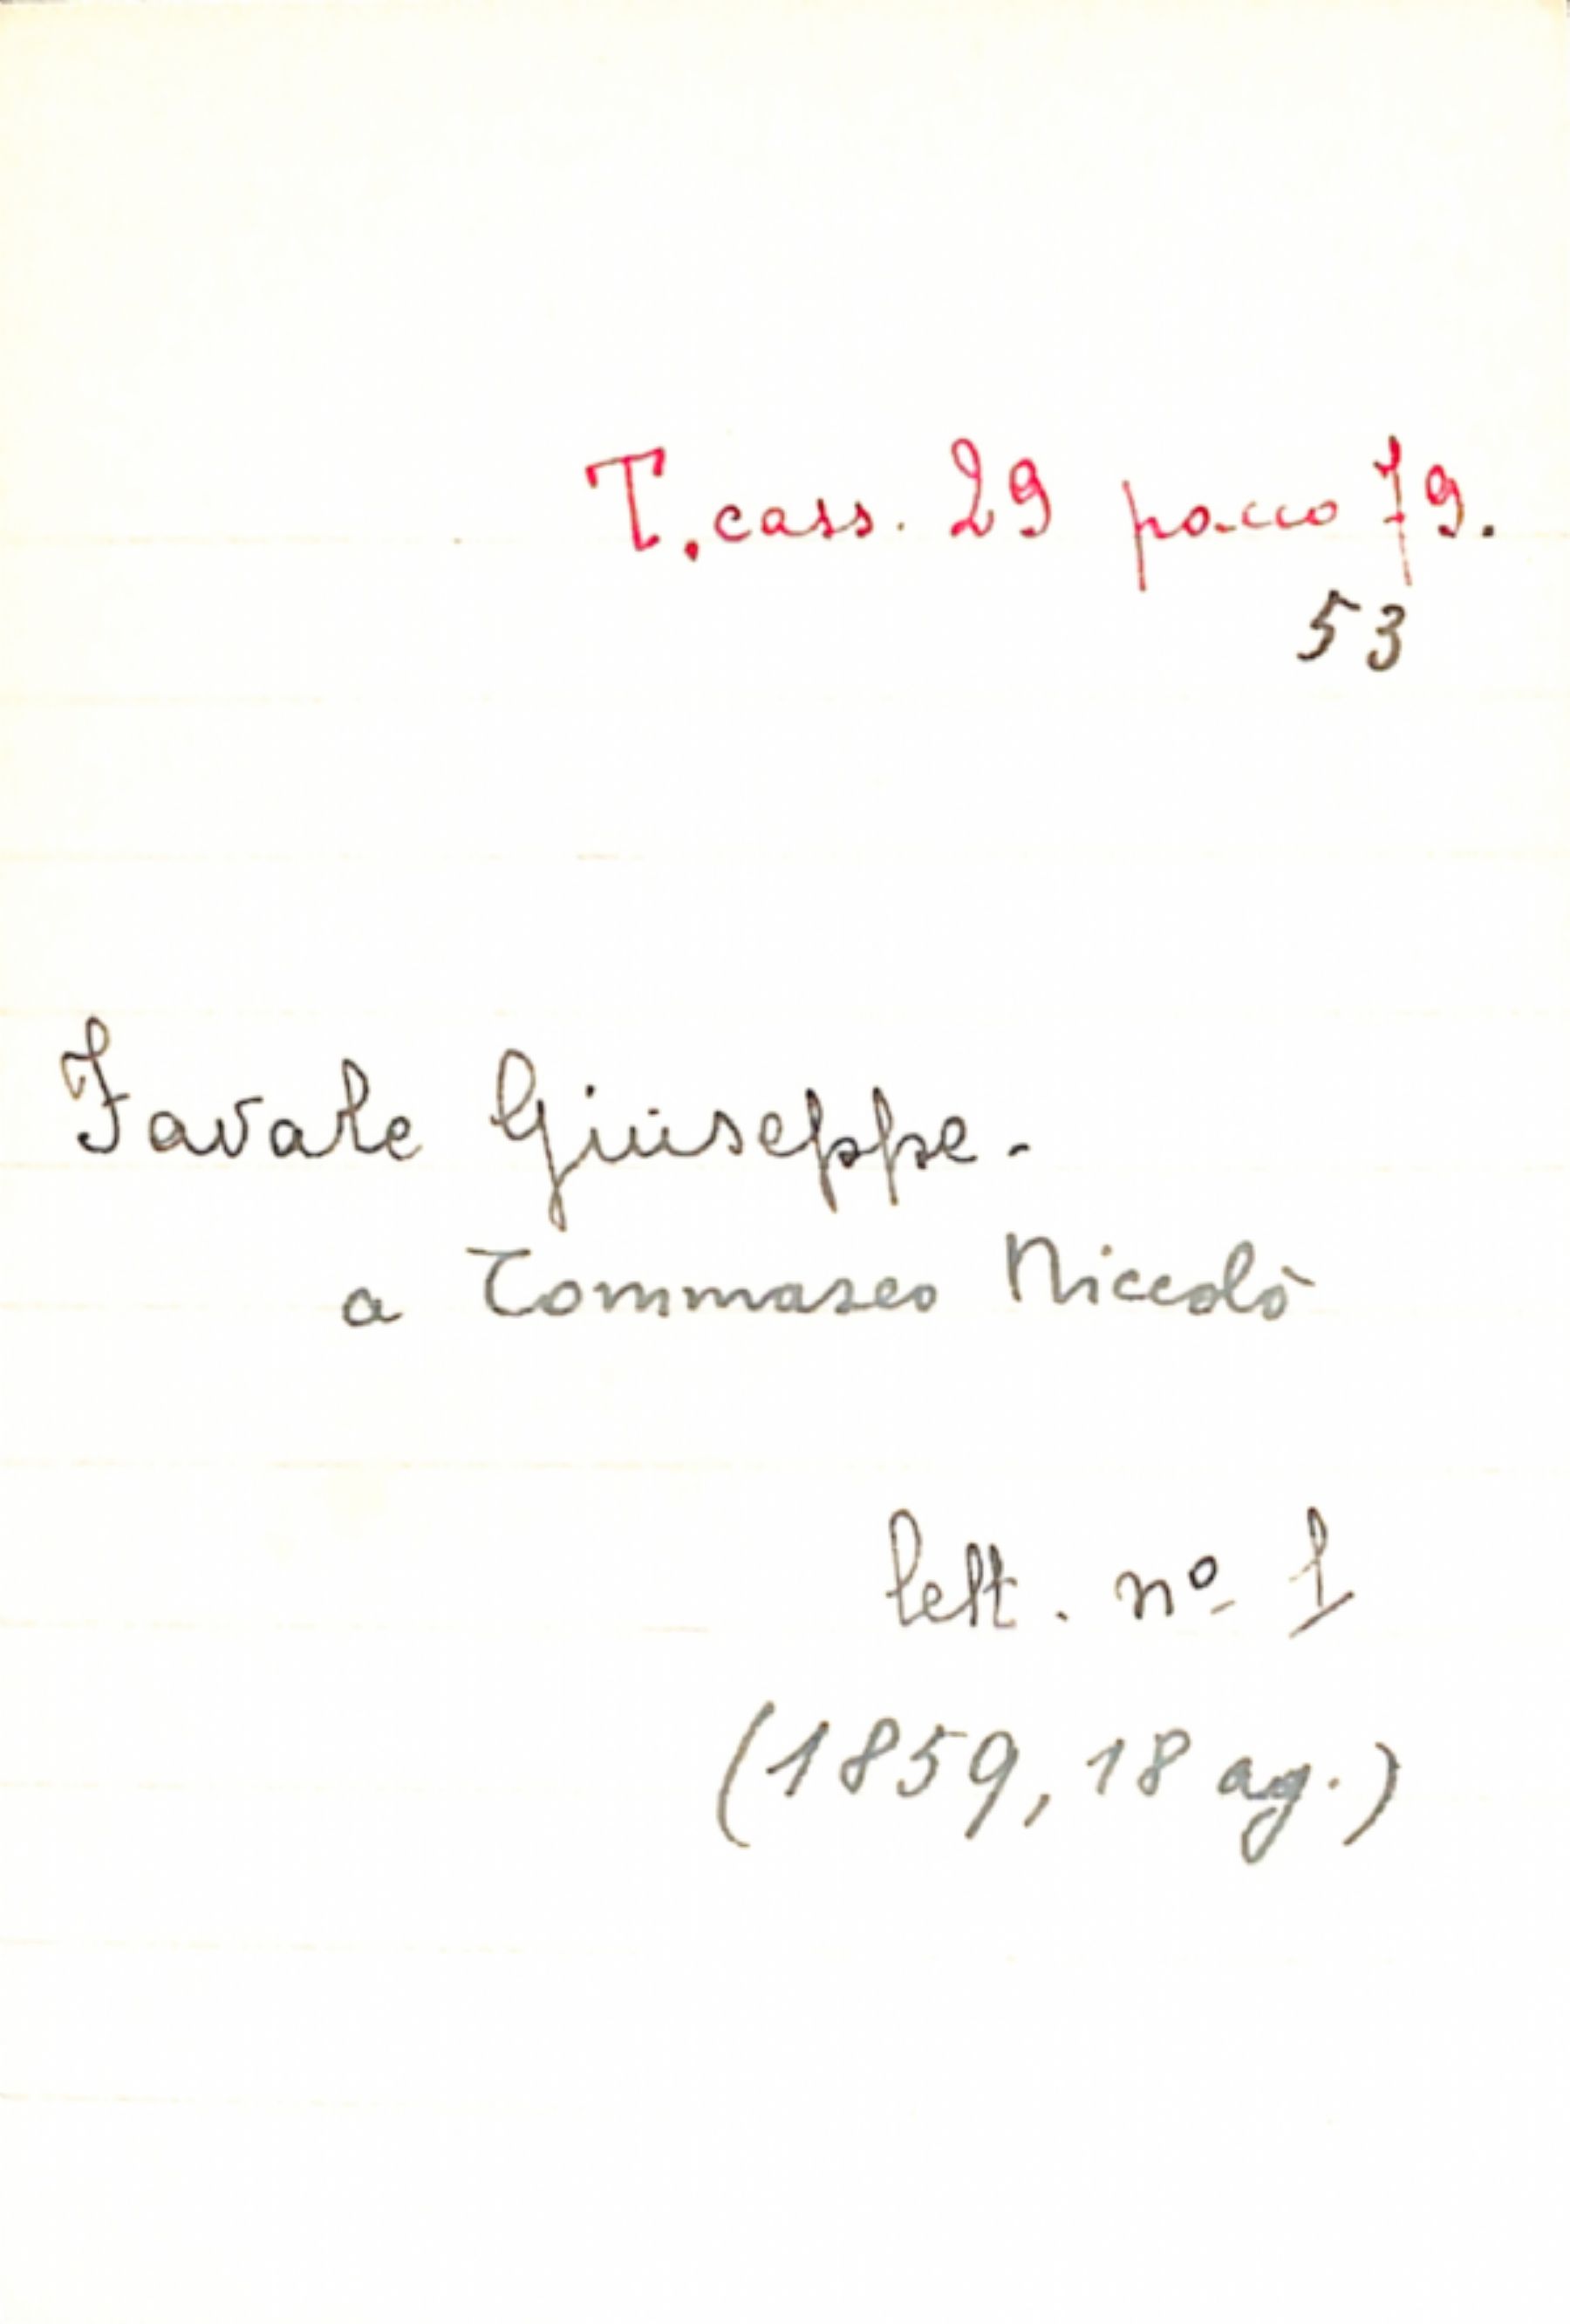 T. cass. 29 pacco 79.
53
Favale Giuseppe.
a Tommaseo Niccolò
lett. nº 1
(1859, 18 ag.)